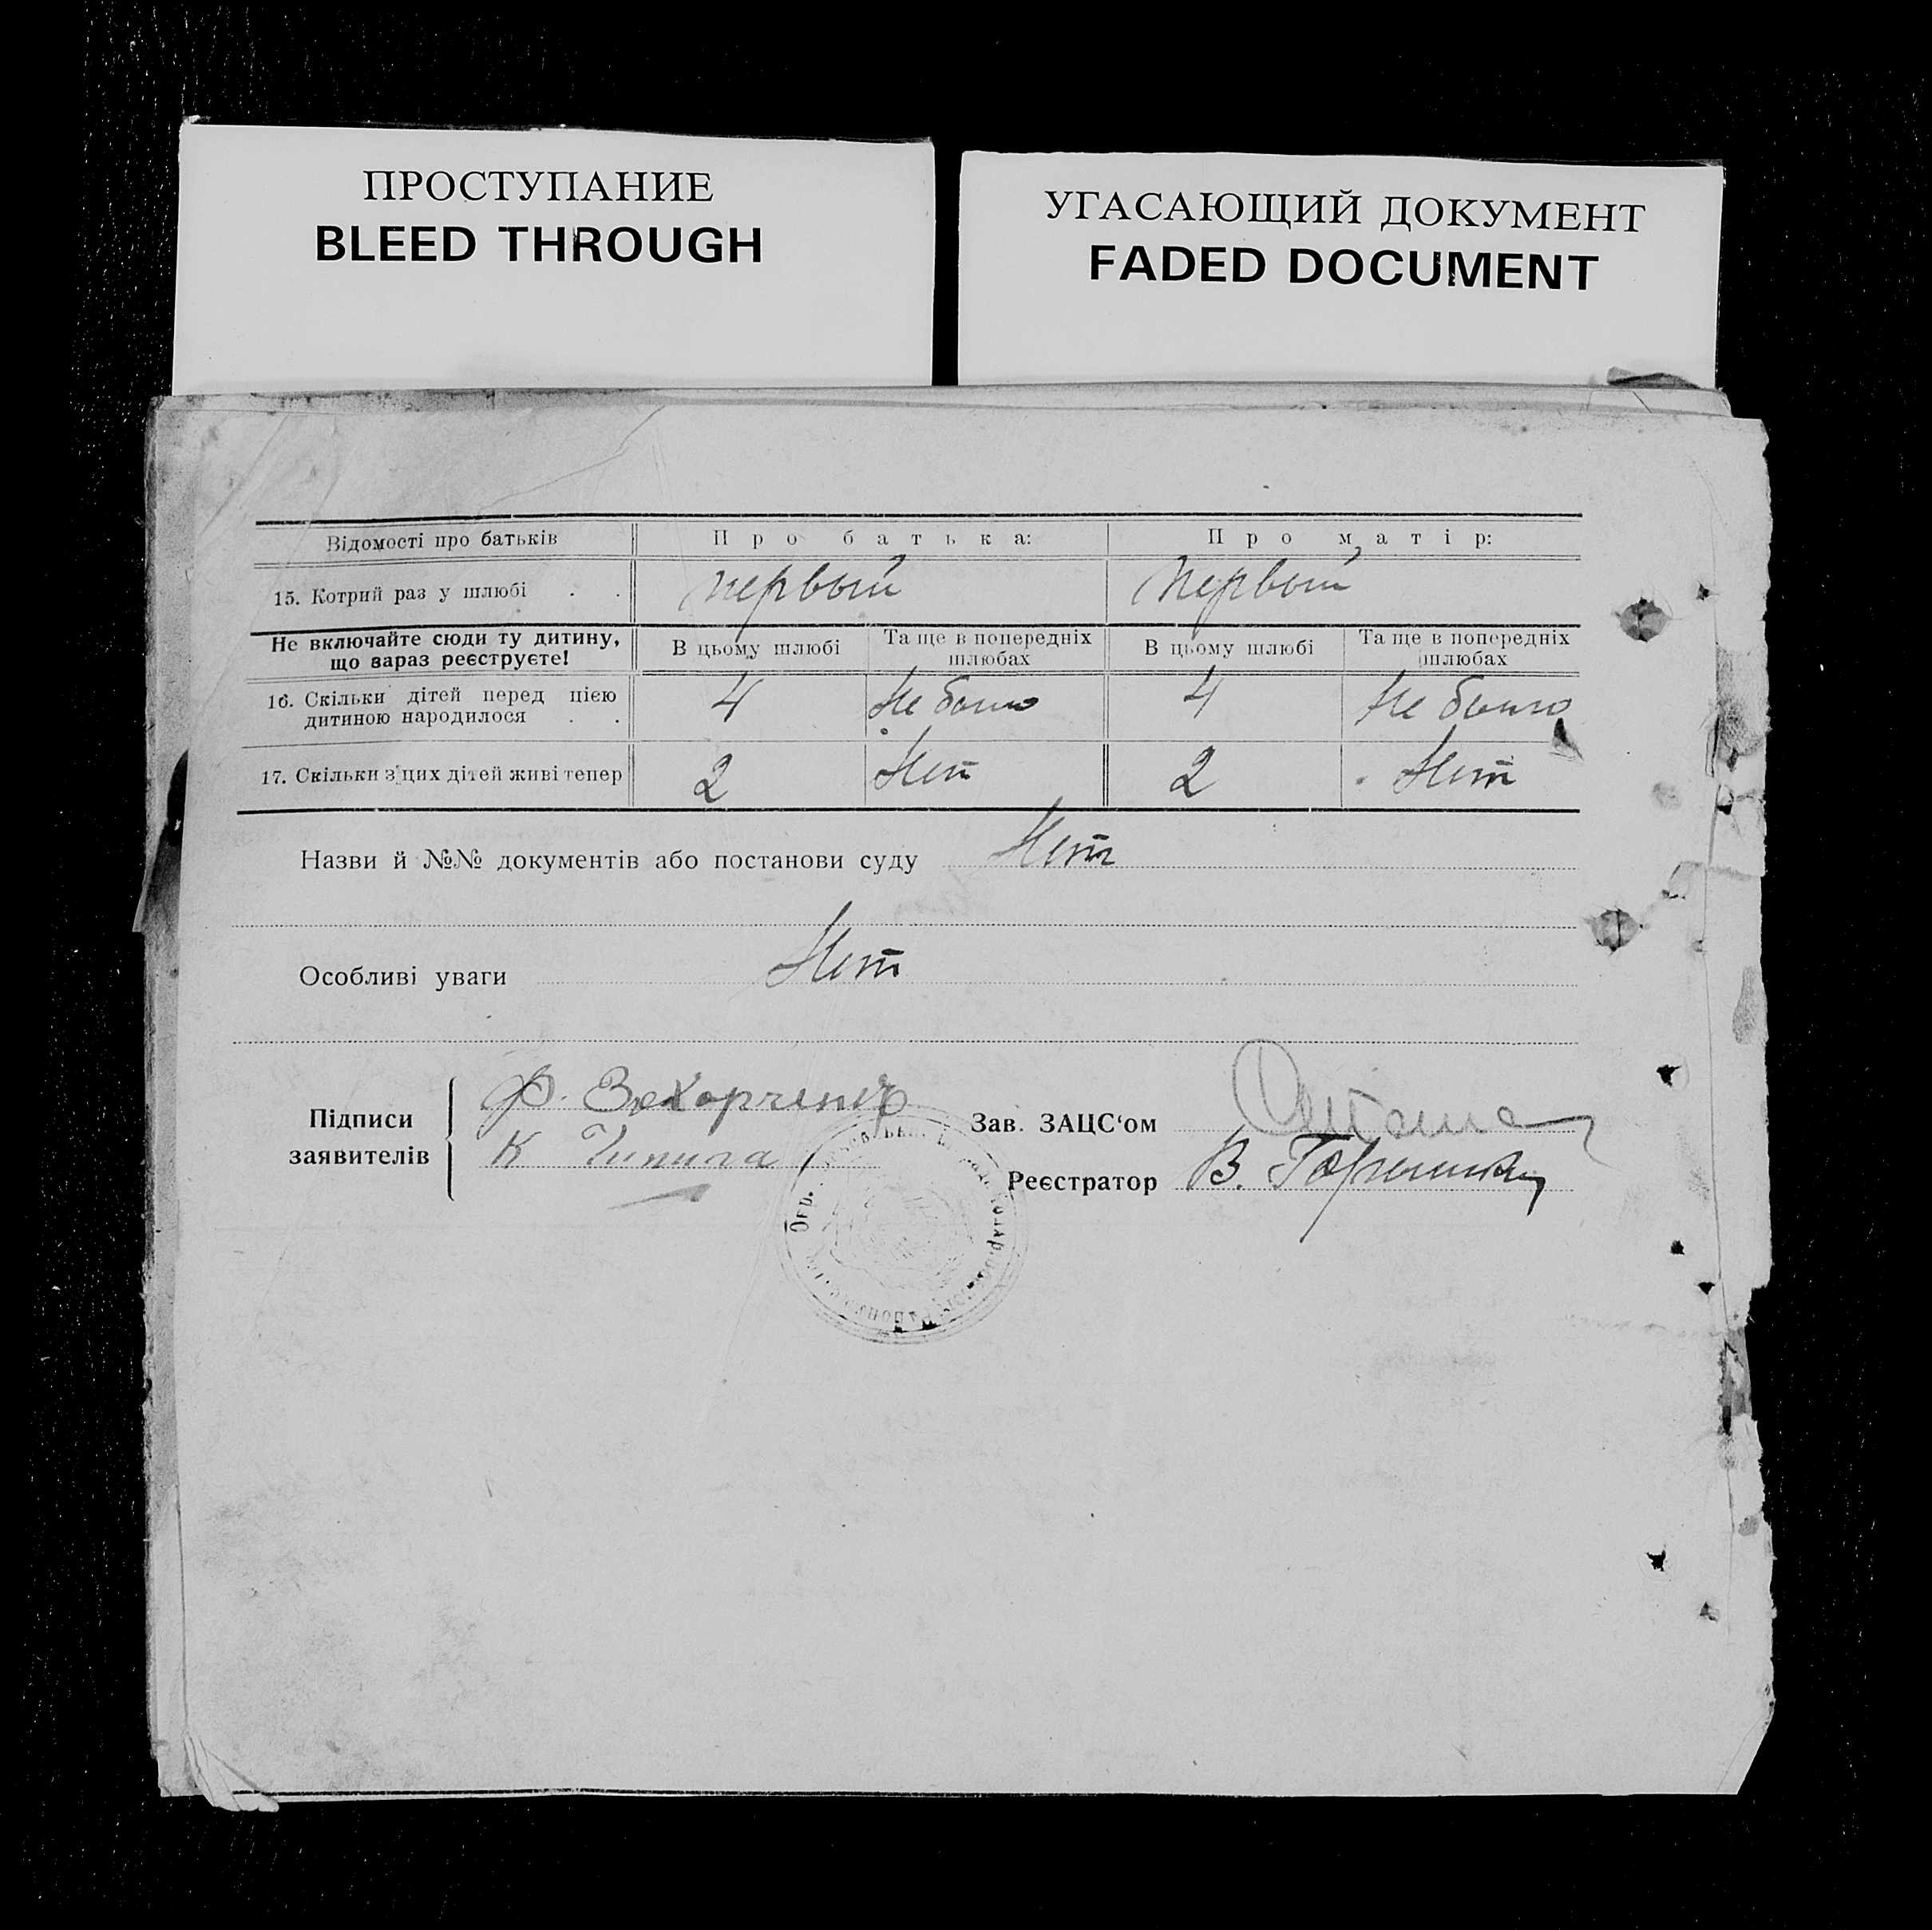 ПРОСТУПАНИЕ
BLEED THROUGH
УГАСАЮЩИЙ ДОКУМЕНТ
FADED DOCUMENT
Відомості про батьків Про батька: Про матір:
15. Котрий раз у шлюбі . . первый первый
Не включайте сюди ту дитину, що вараз реєструєте! В цьому шлюбі Та ще в попередніх шлюбах В цьому шлюбі Та ще в попередніх шлюбах
16. Скільки дітей перед цією дитиною народилося . . 4 Не было 4 Не было
17. Скільки з цих дітей живі тепер 2 Нет 2 Нет
Назви й №№ документів або постанови суду Нет
Особливі уваги Нет
Підписи заявителів
Ф.
К
Зав. ЗАЦС‘ом
Реєстратор В.